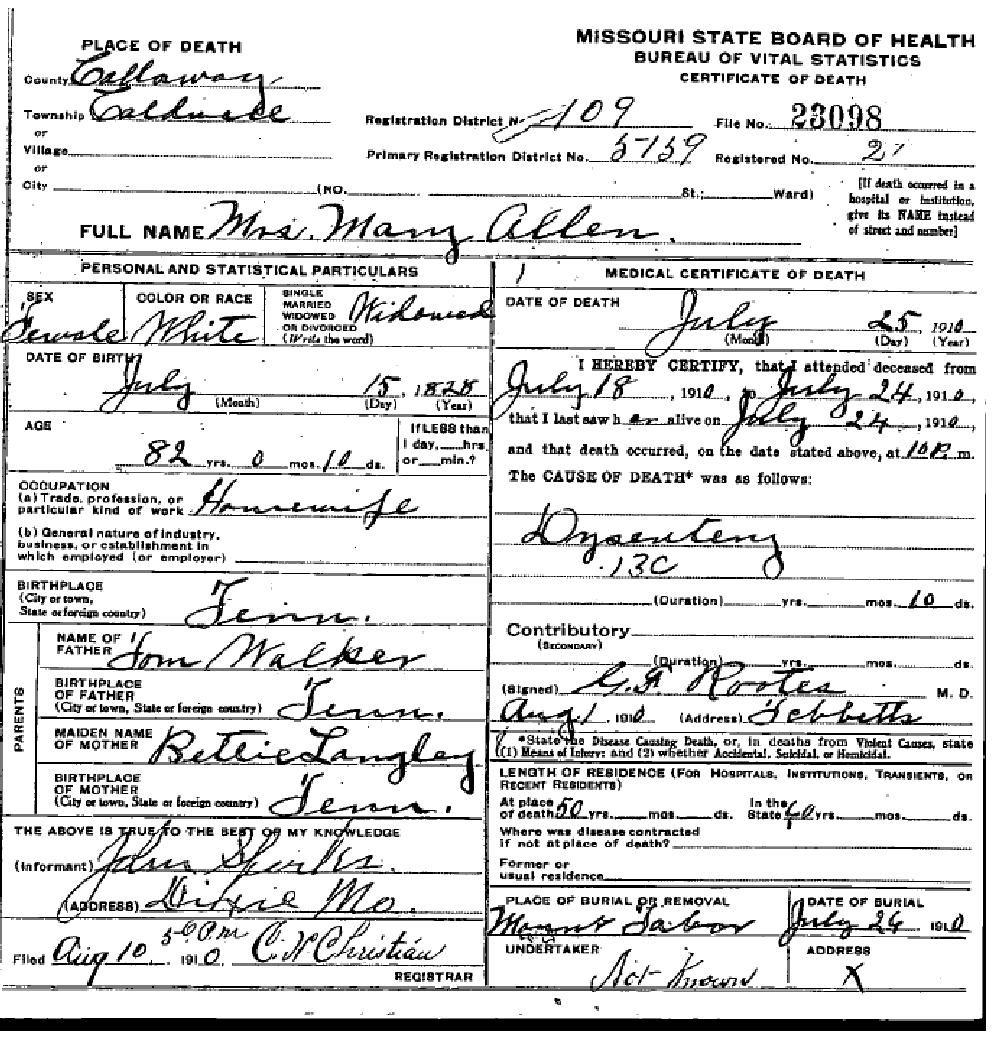 MISSOURI STATE BOARD OF HEALTH
BUREAU OF VITAL STATISTICS
CERTIFICATE OF DEATH
PLACE OF DEATH
County Callaway
Township Caldwell
or
Village
or
City (NO. St.; Ward)
Registration District No. 109 File No. 23098
Primary Registration District No. 5159 Registered No. 21
[If death occurred in a
hospital or institution,
give its NAME instead
of street and number]
FULL NAME Mrs. Mary Allen.
PERSONAL AND STATISTICAL PARTICULARS
SEX Female
COLOR OR RACE White
SINGLE
MARRIED
WIDOWED
OR DIVORCED
(Write the word) Widowed
DATE OF BIRTH
July 15, 1828
(Month) (Day) (Year)
AGE
82 yrs. 0 mos. 10 ds.
If LESS than
1 day, hrs.
or min.?
OCCUPATION
(a) Trade, profession, or
particular kind of work Housewife
(b) General nature of industry,
business, or establishment in
which employed (or employer)
BIRTHPLACE
(City or town,
State or foreign country) Tenn.
PARENTS
NAME OF
FATHER Tom Walker
BIRTHPLACE
OF FATHER
(City or town, State or foreign country) Tenn.
MAIDEN NAME
OF MOTHER Bettie Langley
BIRTHPLACE
OF MOTHER
(City or town, State or foreign country) Tenn.
THE ABOVE IS TRUE TO THE BEST OF MY KNOWLEDGE
(Informant) John
(ADDRESS) Dixie Mo.
Filed Aug 10 1910 C. N. Christian
REGISTRAR
MEDICAL CERTIFICATE OF DEATH
DATE OF DEATH
July 25 1910
(Month) (Day) (Year)
I HEREBY CERTIFY, that I attended deceased from
July 18, 1910, to July 24, 1910,
that I last saw her alive on July 24, 1910,
and that death occurred, on the date stated above, at 10 P. m.
The CAUSE OF DEATH* was as follows:
Dysentery
13C
(Duration) yrs. mos. 10 ds.
Contributory
(SECONDARY)
(Duration) yrs. mos. ds.
(Signed) G.F. Rootes M. D.
Aug 1 1910 (Address) Tebbetts
*State the Disease Causing Death, or, in deaths from Violent Causes, state
(1) Means of Injury; and (2) whether Accidental, Suicidal, or Homicidal.
LENGTH OF RESIDENCE (FOR HOSPITALS, INSTITUTIONS, TRANSIENTS, OR
RECENT RESIDENTS)
At place
of death 50 yrs. mos. ds. In the
State 60 yrs. mos. ds.
Where was disease contracted
if not at place of death?
Former or
usual residence
PLACE OF BURIAL OR REMOVAL
Mount Tabor
DATE OF BURIAL
July 26 1910
UNDERTAKER
Not Known
ADDRESS
X